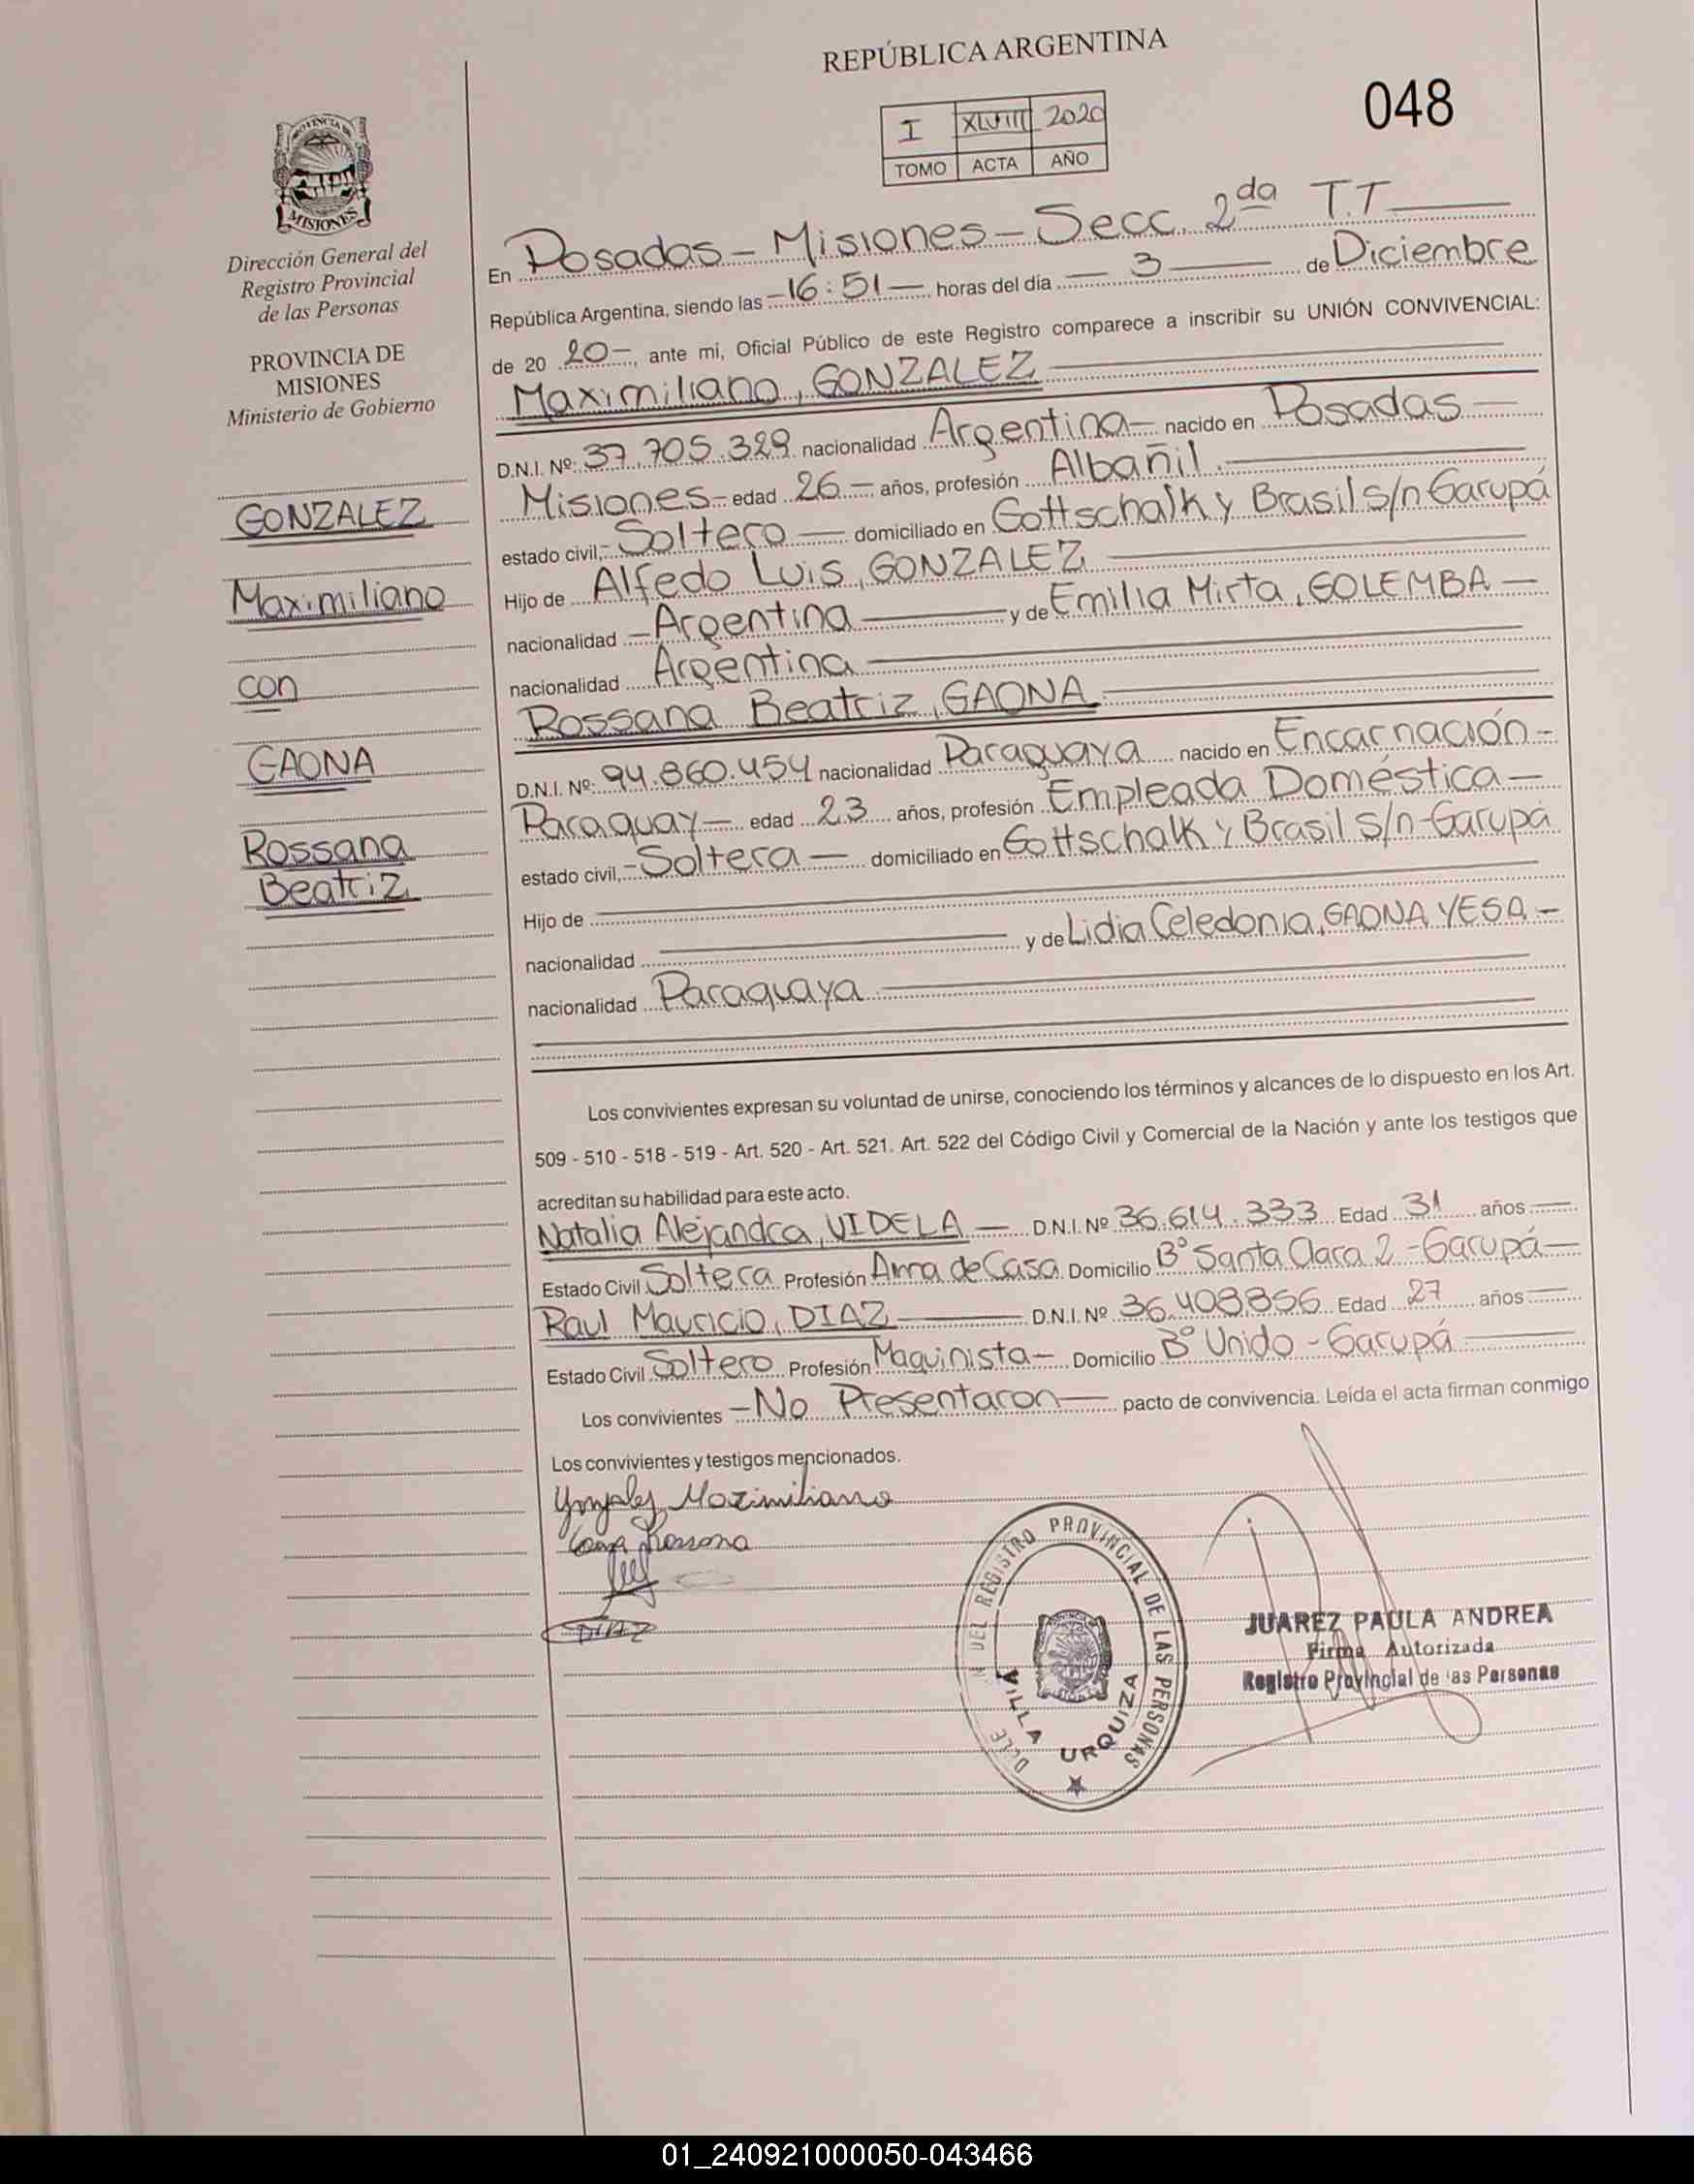 REPÚBLICA ARGENTINA
048
I XLVIII 2020
TOMO ACTA AÑO
PROVINCIA DE
MISIONES
Dirección General del
Registro Provincial
de las Personas
PROVINCIA DE
MISIONES
Ministerio de Gobierno
GONZALEZ
Maximiliano
con
GAONA
Rossana
Beatriz
En Posadas - Misiones - Secc. 2da T.T
República Argentina, siendo las - 16:51 - horas del día - 3 - de Diciembre
de 20 20 -, ante mi, Oficial Público de este Registro comparece a inscribir su UNIÓN CONVIVENCIAL:
Maximiliano, GONZALEZ
D.N.I. Nº: 37.705.329 nacionalidad Argentina - nacido en Posadas -
Misiones - edad 26 - años, profesión Albañil.
estado civil, - Soltero - domiciliado en Gottschalk y Brasil s/n Garupá
Hijo de Alfedo Luis, GONZALEZ
nacionalidad - Argentina - y de Emilia Mirta, GOLEMBA -
nacionalidad Argentina
Rossana Beatriz, GAONA
D.N.I. Nº: 94.860.454 nacionalidad Paraguaya nacido en Encarnación -
Paraguay - edad 23 años, profesión Empleada Doméstica -
estado civil, - Soltera - domiciliado en Gottschalk y Brasil s/n - Garupá
Hijo de
nacionalidad y de Lidia Celedonia, GAONA YESA -
nacionalidad Paraguaya
Los convivientes expresan su voluntad de unirse, conociendo los términos y alcances de lo dispuesto en los Art.
509 - 510 - 518 - 519 - Art. 520 - Art. 521. Art. 522 del Código Civil y Comercial de la Nación y ante los testigos que
acreditan su habilidad para este acto.
Natalia Alejandra, VIDELA - D.N.I. Nº 36.614.333 Edad 31 años -
Estado Civil Soltera Profesión Ama de Casa Domicilio Bº Santa Clara 2 - Garupá -
Raul Mauricio, DIAZ - D.N.I. Nº 36.408.856 Edad 27 años -
Estado Civil Soltero Profesión Maquinista - Domicilio Bº Unido - Garupá
Los convivientes - No Presentaron - pacto de convivencia. Leída el acta firman conmigo
Los convivientes y testigos mencionados.
Gonzalez Maximiliano
Gaona Rossana
DIAZ
DEL REGISTRO PROVINCIAL DE LAS PERSONAS
VILLA URQUIZA
JUAREZ PAULA ANDREA
Firma Autorizada
Registro Provincial de las Personas
01_240921000050-043466